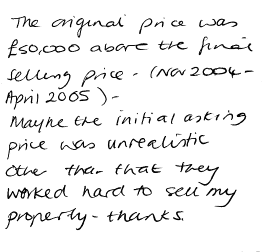 The original price was
£50,000 above the final
selling price - (Nov 2004 -
April 2005) -
Maybe the initial asking
price was unrealistic
Other than that they
worked hard to sell my
property - thanks.